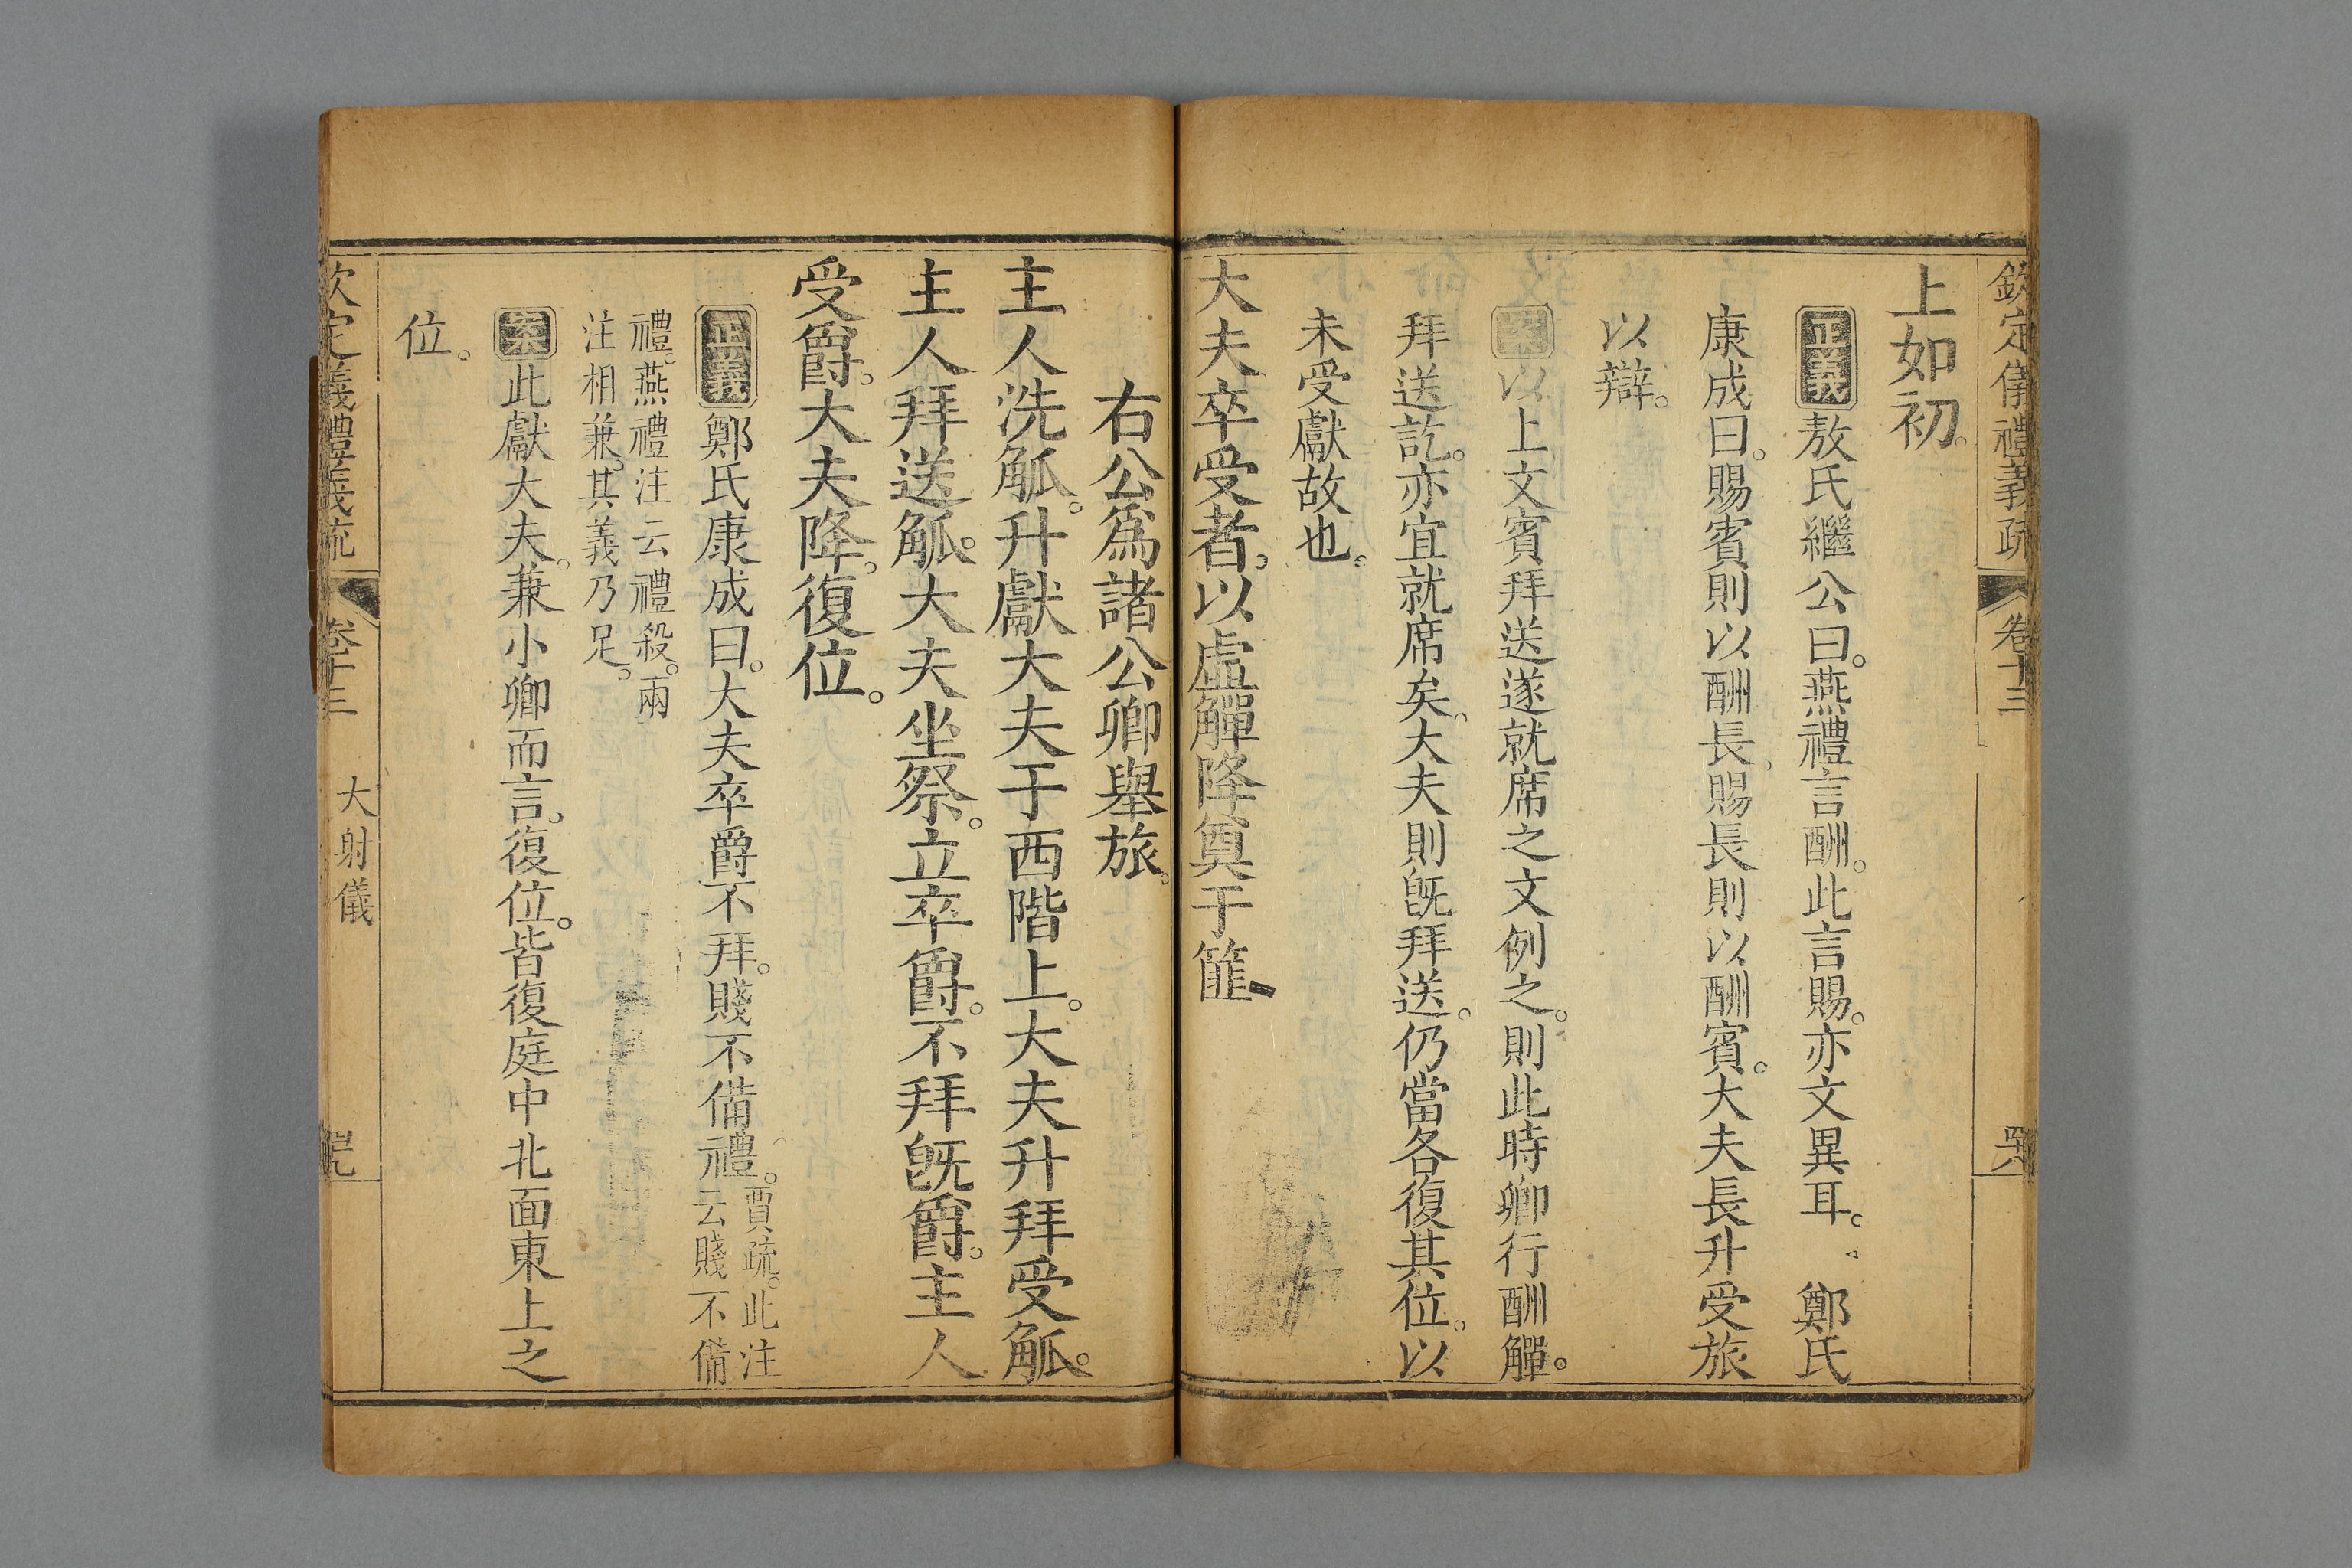 欽定儀禮義疏 卷十三
上如初。
正義 敖氏繼公曰。燕禮言酬。此言賜。亦文異耳。 鄭氏
康成曰。賜賓則以酬長、賜長則以酬賓。大夫長升受旅
以辯。
案 以上文賓拜送遂就席之文例之。則此時卿行酬觶。
拜送訖。亦宜就席矣。大夫則旣拜送。仍當各復其位。以
未受獻故也。
大夫卒受者。以虛觶降奠于篚
右公爲諸公卿舉旅。
主人洗觚。升獻大夫于西階上。大夫升拜受觚。
主人拜送觚。大夫坐祭。立卒爵。不拜旣爵。主人
受爵。大夫降。復位。
正義 鄭氏康成曰。大夫卒爵不拜。賤不備禮。賈疏。此注
云賤不備
禮。燕禮注云禮殺。兩
注相兼。其義乃足。
案 此獻大夫。兼小卿而言。復位。皆復庭中北面東上之
位。
欽定儀禮義疏 卷十三 大射儀